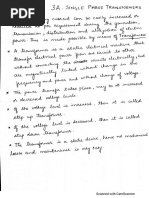 3A. SINGLE PHASE TRANSFORMERS
current can be easily increased or
decreased as per requirement during
transmission, distribution and utilization of electric
power. This is mainly possible by means of Transformers
A Transformer is a static electrical machine that
transfer electrical power from one circuit to other
without connecting the circuits electrically, but
are magnetically linked without change in the
frequency and power and without change of voltage
The power transfer takes place, may be at increased
or decreased voltage levels
If the voltage level is increased, then it is called
step up Transformer
If the voltage level is decreased, then it is called
step down Transformer
The Transformer is a static device, hence no
losses and maintenance is very less
Scanned with CamScanner